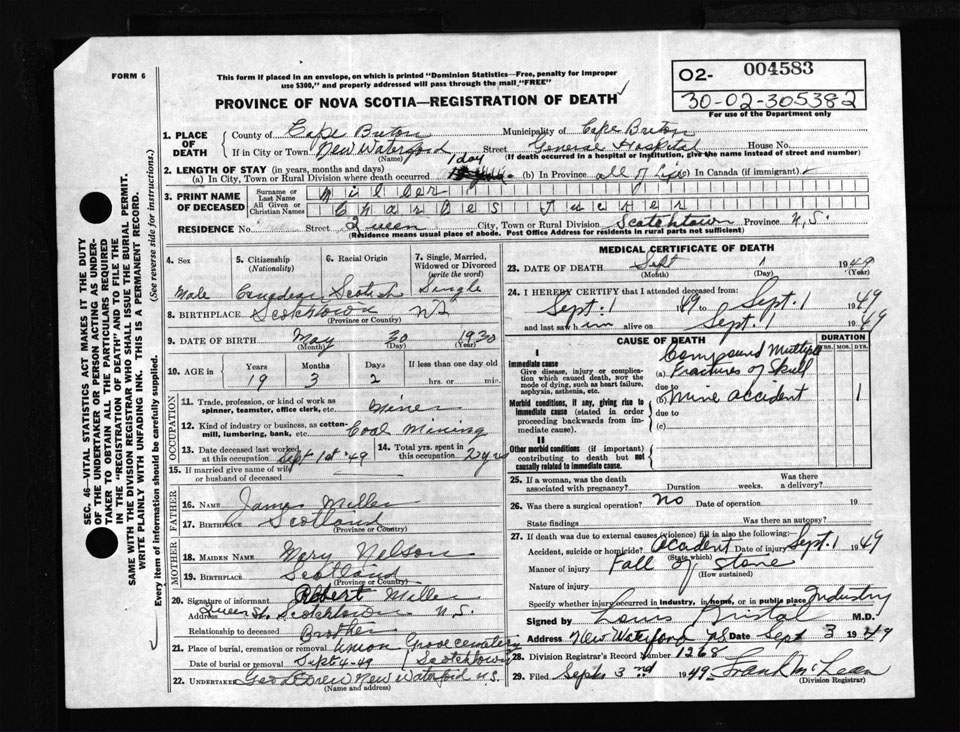 FORM 6
This form if placed in an envelope, on which is printed "Dominion Statistics—Free, penalty for improper
use $300," and properly addressed will pass through the mail "FREE"
O2- 004583
30-02-305382
For use of the Department only
PROVINCE OF NOVA SCOTIA—REGISTRATION OF DEATH
1. PLACE OF DEATH
County of Cape Breton Municipality of Cape Breton
If in City or Town New Waterford Street General Hospital House No.
(Name) (If death occurred in a hospital or institution, give the name instead of street and number)
2. LENGTH OF STAY (in years, months and days) 1 day
(a) In City, Town or Rural Division where death occurred (b) In Province all of life (c) In Canada (if immigrant)
3. PRINT NAME OF DECEASED
Surname or Last Name Miller
All Given or Christian Names Charles Tucker
RESIDENCE No. Street Queen City, Town or Rural Division Scotchtown Province N.S.
(Residence means usual place of abode. Post Office Address for residents in rural parts not sufficient)
4. Sex Male
5. Citizenship (Nationality) Canadean
6. Racial Origin Scotish
7. Single, Married, Widowed or Divorced (write the word) Single
8. BIRTHPLACE Scotchtown NS
(Province or Country)
9. DATE OF BIRTH May 30 1930
(Month) (Day) (Year)
10. AGE in Years 19 Months 3 Days 2 If less than one day old hrs. or min.
OCCUPATION
11. Trade, profession, or kind of work as spinner, teamster, office clerk, etc. Miner
12. Kind of industry or business, as cotton-mill, lumbering, bank, etc. Coal Mining
13. Date deceased last worked at this occupation Sept 1st '49
14. Total yrs. spent in this occupation 2 yrs
15. If married give name of wife or husband of deceased
FATHER
16. Name James Miller
17. Birthplace Scotland
(Province or Country)
MOTHER
18. Maiden Name Mary Nelson
19. Birthplace Scotland
(Province or Country)
20. Signature of informant Robert Miller
Address Queen St. Scotchtown N.S.
Relationship to deceased Brother
21. Place of burial, cremation or removal Union Grove cemetery
Date of burial or removal Sept 4-49 (Scotchtown)
22. UNDERTAKER New Waterford N.S.
(Name and address)
MEDICAL CERTIFICATE OF DEATH
23. DATE OF DEATH Sept 1 1949
(Month) (Day) (Year)
24. I HEREBY CERTIFY that I attended deceased from:
Sept. 1 1949 to Sept. 1 1949
and last saw him alive on Sept. 1 1949
CAUSE OF DEATH DURATION
YRS. MOS. DYS.
I
Immediate cause
Give disease, injury or complication which caused death, not the mode of dying, such as heart failure, asphyxia, asthenia, etc.
(a) Compound Multiple Fractures of Skull
due to
Morbid conditions, if any, giving rise to immediate cause (stated in order proceeding backwards from immediate cause).
(b) Mine accident 1
due to
(c)
II
Other morbid conditions (if important) contributing to death but not causally related to immediate cause.
25. If a woman, was the death associated with pregnancy? Duration weeks. Was there a delivery?
26. Was there a surgical operation? No Date of operation 19
State findings Was there an autopsy?
27. If death was due to external causes (violence) fill in also the following:
Accident, suicide or homicide? Accident Date of injury Sept. 1 1949
(State which)
Manner of injury Fall of stone
(How sustained)
Nature of injury
Specify whether injury occurred in industry, in home, or in public place Industry
Signed by Louis M.D.
Address New Waterford NS Date Sept 3 1949
28. Division Registrar's Record Number 1268
29. Filed Sept. 3rd 1949 Frank McLean
(Division Registrar)
SEC. 46—VITAL STATISTICS ACT MAKES IT THE DUTY
OF THE UNDERTAKER OR PERSON ACTING AS UNDER-
TAKER TO OBTAIN ALL THE PARTICULARS REQUIRED
IN THE "REGISTRATION OF DEATH" AND TO FILE THE
SAME WITH THE DIVISION REGISTRAR WHO SHALL ISSUE THE BURIAL PERMIT.
WRITE PLAINLY WITH UNFADING INK. THIS IS A PERMANENT RECORD.
Every item of Information should be carefully supplied. (See reverse side for instructions.)